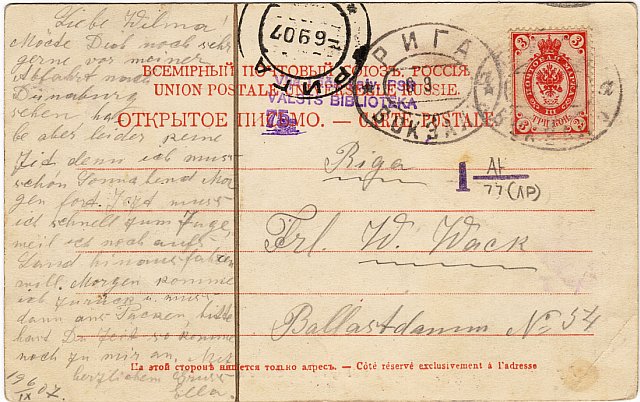 Liebe Wilma!
Möchte Dich noch sehr
gerne vor meiner
Abfahrt nach
Dünaburg
sehen, habe
aber leider keine
Zeit denn ich muss
schon Sonnabend Mor
gen fort. Jetzt muss
ich schnell zum Zuge
weil ich noch aufs
Land hinausfahren
will. Morgen komme
ich zurück u. muss
dann ans Packen, bitte
hast Du Zeit so komme
noch zu mir an. Mit
herzlichem Gruss
Ella.
19 6/IX 07.
ВСЕМІРНЫЙ ПОЧТОВЫЙ СОЮЗЪ. РОССІЯ
UNION POSTALE UNIVERSELLE. RUSSIE.
ОТКРЫТОЕ ПИСЬМО. — CARTE POSTALE
-6 9 07
РИГА
РИГА
ВОКЗАЛ
VALSTS BIBLIOTEKA
75
3 3
ТРИ КОП.
3 3
1 АН
77(ЛР)
Riga
Frl. W. Wack
Ballastdamm No 54
На этой сторонѣ пишется только адресъ. — Côté réservé exclusivement à l'adresse